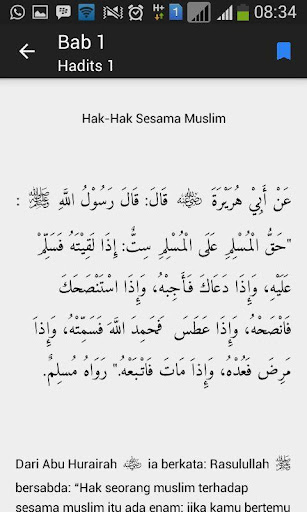 08:34
Bab 1
Hadits 1
Hak-Hak Sesama Muslim
عَنْ أَبِيْ هُرَيْرَةَ ﷺ قَالَ: قَالَ رَسُوْلُ اللَّهِ ﷺ :
"حَقُّ الْمُسْلِمِ عَلَى الْمُسْلِمِ سِتٌّ: إِذَا لَقِيْتَهُ فَسَلِّمْ
عَلَيْهِ، وَإِذَا دَعَاكَ فَأَجِبْهُ، وَإِذَا اسْتَنْصَحَكَ
فَانْصَحْهُ، وَإِذَا عَطَسَ فَحَمِدَ اللَّهَ فَسَمِّتْهُ، وَإِذَا
مَرِضَ فَعُدْهُ، وَإِذَا مَاتَ فَاتْبَعْهُ." رَوَاهُ مُسْلِمٌ.
Dari Abu Hurairah ia berkata: Rasulullah ﷺ
bersabda: “Hak seorang muslim terhadap
sesama muslim itu ada enam: jika kamu bertemu